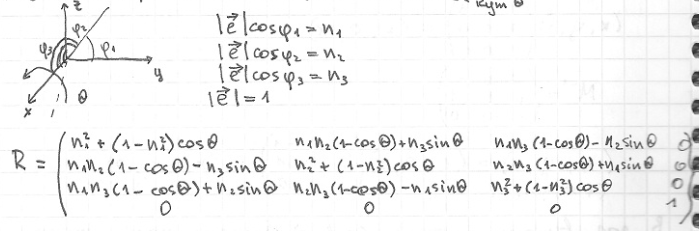 кут θ
z
φ₂
φ₃ φ₁
y
x θ
|e⃗|cosφ₁ = n₁
|e⃗|cosφ₂ = n₂
|e⃗|cosφ₃ = n₃
|e⃗| = 1
R = ( n₁² + (1-n₁²)cosθ n₁n₂(1-cosθ)+n₃sinθ n₁n₃(1-cosθ)-n₂sinθ 0
n₁n₂(1-cosθ)-n₃sinθ n₂²+(1-n₂²)cosθ n₂n₃(1-cosθ)+n₁sinθ 0
n₁n₃(1-cosθ)+n₂sinθ n₂n₃(1-cosθ)-n₁sinθ n₃²+(1-n₃²)cosθ 0
0 0 0 1